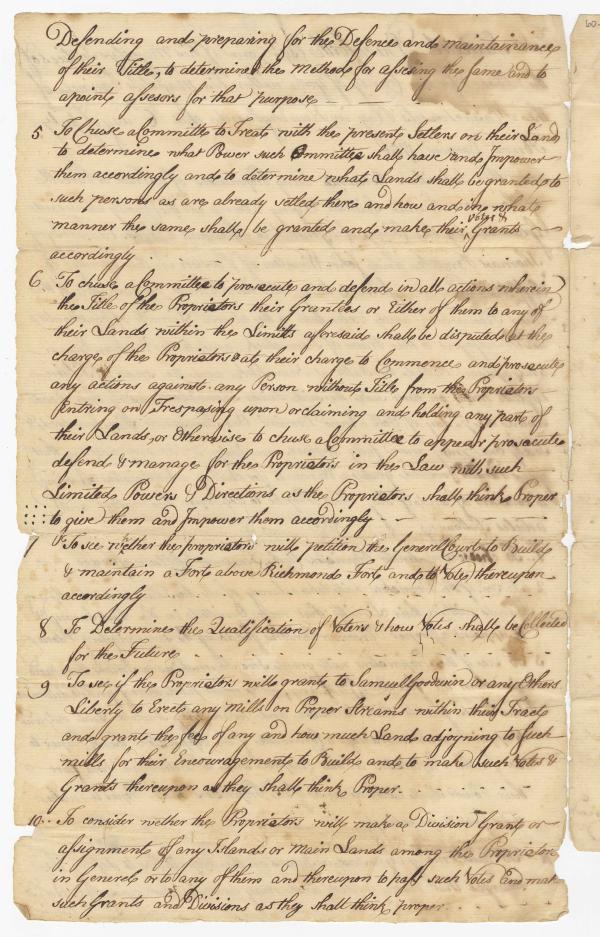 Defending and preparing for the Defence and maintainance
of their Title, to determine the Method for assesing the same and to
apoint assesors for that purpose
5 To Chuse a Committe to Treat with the present Setlers on their Land
to determine what Power such Committe shall have and Impower
them accordingly and to determine what Lands shall be granted to
such persons as are already setled there and how and in what
manner the same shall be granted and make their Votes & Grants
accordingly
6 To chuse a Committee to prosecute and defend in all actions wherein
the Title of the Propriators their Grantees or Either of them to any of
their Lands within the Limitts aforesaid shall be disputed at the
charge of the Propriators & at their charge to Commence and prosacute
any actions against any Person without Title from the Propriators
Entring on Trespasing upon or claiming and holding any part of
their Lands, or Otherwise to chuse a Committee to appear prosacute
defend & manage for the Propriators in the Law with such
Limited Powers & Directions as the Propriators shall think Proper
to give them and Impower them accordingly
7 To see wether the propriators will petition the Generel Court to Build
& maintain a Fort above Richmond Fort and to Vote thereupon
accordingly
8 To Determine the Qualification of Voters & how Votes shall be Collected
for the Future
9 To see if the Propriators will grant to Samuel Goodwin or any Others
Liberty to Erect any mills on Proper Streams within their Tract
and grant the fee of any and how much Land adjoyning to such
mills for their Encouragement to Build and to make such Votes &
Grants thereupon as they shall think Proper.
10 To consider wether the Propriators will make a Division Grant or
assignment of any Islands or Main Lands among the Propriators
in Generel or to any of them and thereupon to pass such Votes and make
such Grants and Divisions as they shall think proper